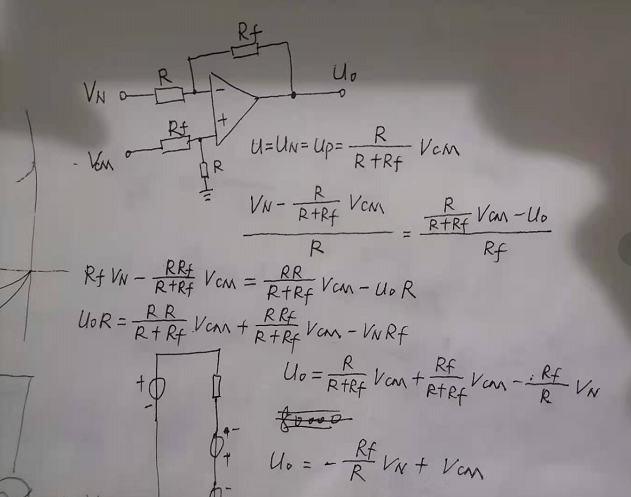 Rf
R
VN
-
U₀
+
Rf
VCM
R
U=UN=UP= R/(R+Rf) VCM
(VN - R/(R+Rf) VCM)/R = (R/(R+Rf) VCM - U₀)/Rf
Rf VN - RRf/(R+Rf) VCM = RR/(R+Rf) VCM - U₀R
U₀R = RR/(R+Rf) VCM + RRf/(R+Rf) VCM - VNRf
U₀ = R/(R+Rf) VCM + Rf/(R+Rf) VCM - Rf/R VN
U₀ = - Rf/R VN + VCM
+
-
-
+
-